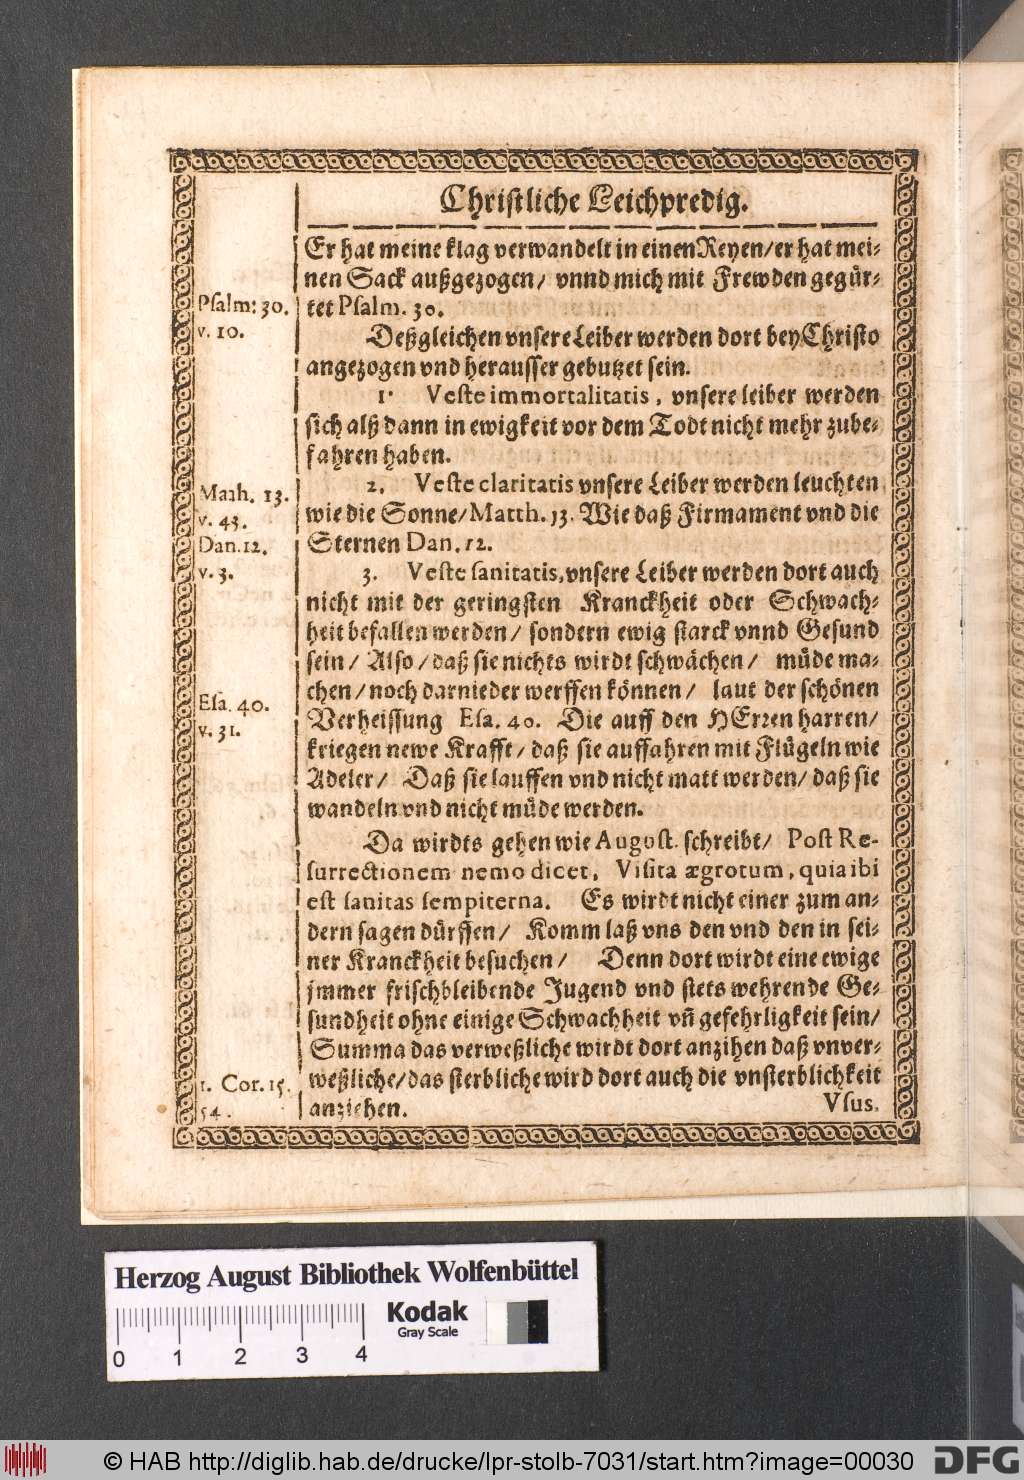 Christliche Leichpredig.
Er hat meine klag verwandelt in einen Reyen/ er hat mei-
nen Sack außgezogen/ vnnd mich mit Frewden gegür-
tet Psalm. 30.
Psalm: 30.
v. 10.
Deßgleichen vnsere Leiber werden dort bey Christo
angezogen vnd herausser gebutzet sein.
1. Veste immortalitatis, vnsere leiber werden
sich alß dann in ewigkeit vor dem Todt nicht mehr zube-
fahren haben.
2. Veste claritatis vnsere Leiber werden leuchten
wie die Sonne/ Matth. 13. Wie daß Firmament vnd die
Sternen Dan. 12.
Math. 13.
v. 43.
Dan. 12.
v. 3.
3. Veste sanitatis, vnsere Leiber werden dort auch
nicht mit der geringsten Kranckheit oder Schwach-
heit befallen werden/ sondern ewig starck vnnd Gesund
sein/ Also/ daß sie nichts wirdt schwächen/ müde ma-
chen/ noch darnieder werffen können/ laut der schönen
Verheissung Esa. 40. Die auff den HErren harren/
kriegen newe Krafft/ daß sie auffahren mit Flügeln wie
Adeler/ Daß sie lauffen vnd nicht matt werden/ daß sie
wandeln vnd nicht müde werden.
Esa. 40.
v. 31.
Da wirdts gehen wie August. schreibt/ Post Re-
surrectionem nemo dicet, Visita ægrotum, quia ibi
est sanitas sempiterna. Es wirdt nicht einer zum an-
dern sagen dürffen/ Komm laß vns den vnd den in sei-
ner Kranckheit besuchen/ Denn dort wirdt eine ewige
jmmer frischbleibende Jugend vnd stets wehrende Ge-
sundheit ohne einige Schwachheit vñ gefehrligkeit sein/
Summa das verweßliche wirdt dort anzihen daß vnver-
weßliche/ das sterbliche wird dort auch die vnsterblichkeit
anziehen.
1. Cor. 15.
54.
Vsus.
Herzog August Bibliothek Wolfenbüttel
Kodak
Gray Scale
0 1 2 3 4
© HAB http://diglib.hab.de/drucke/lpr-stolb-7031/start.htm?image=00030
DFG